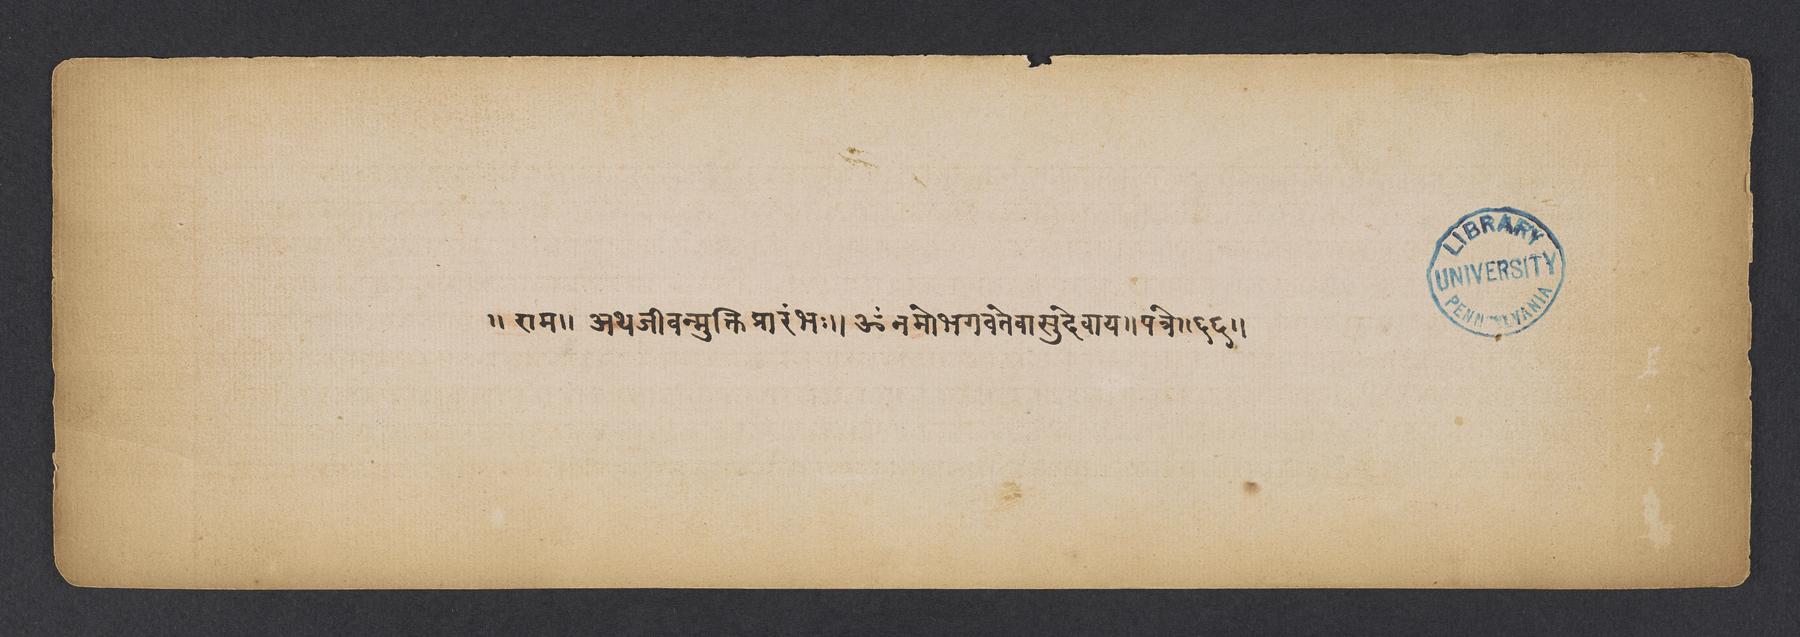 ॥ राम॥ अथजीवन्मुक्ति प्रारंभः॥ ॐ नमोभगवतेवासुदेवाय॥पत्रे॥६६॥
LIBRARY
UNIVERSITY
PENNSYLVANIA